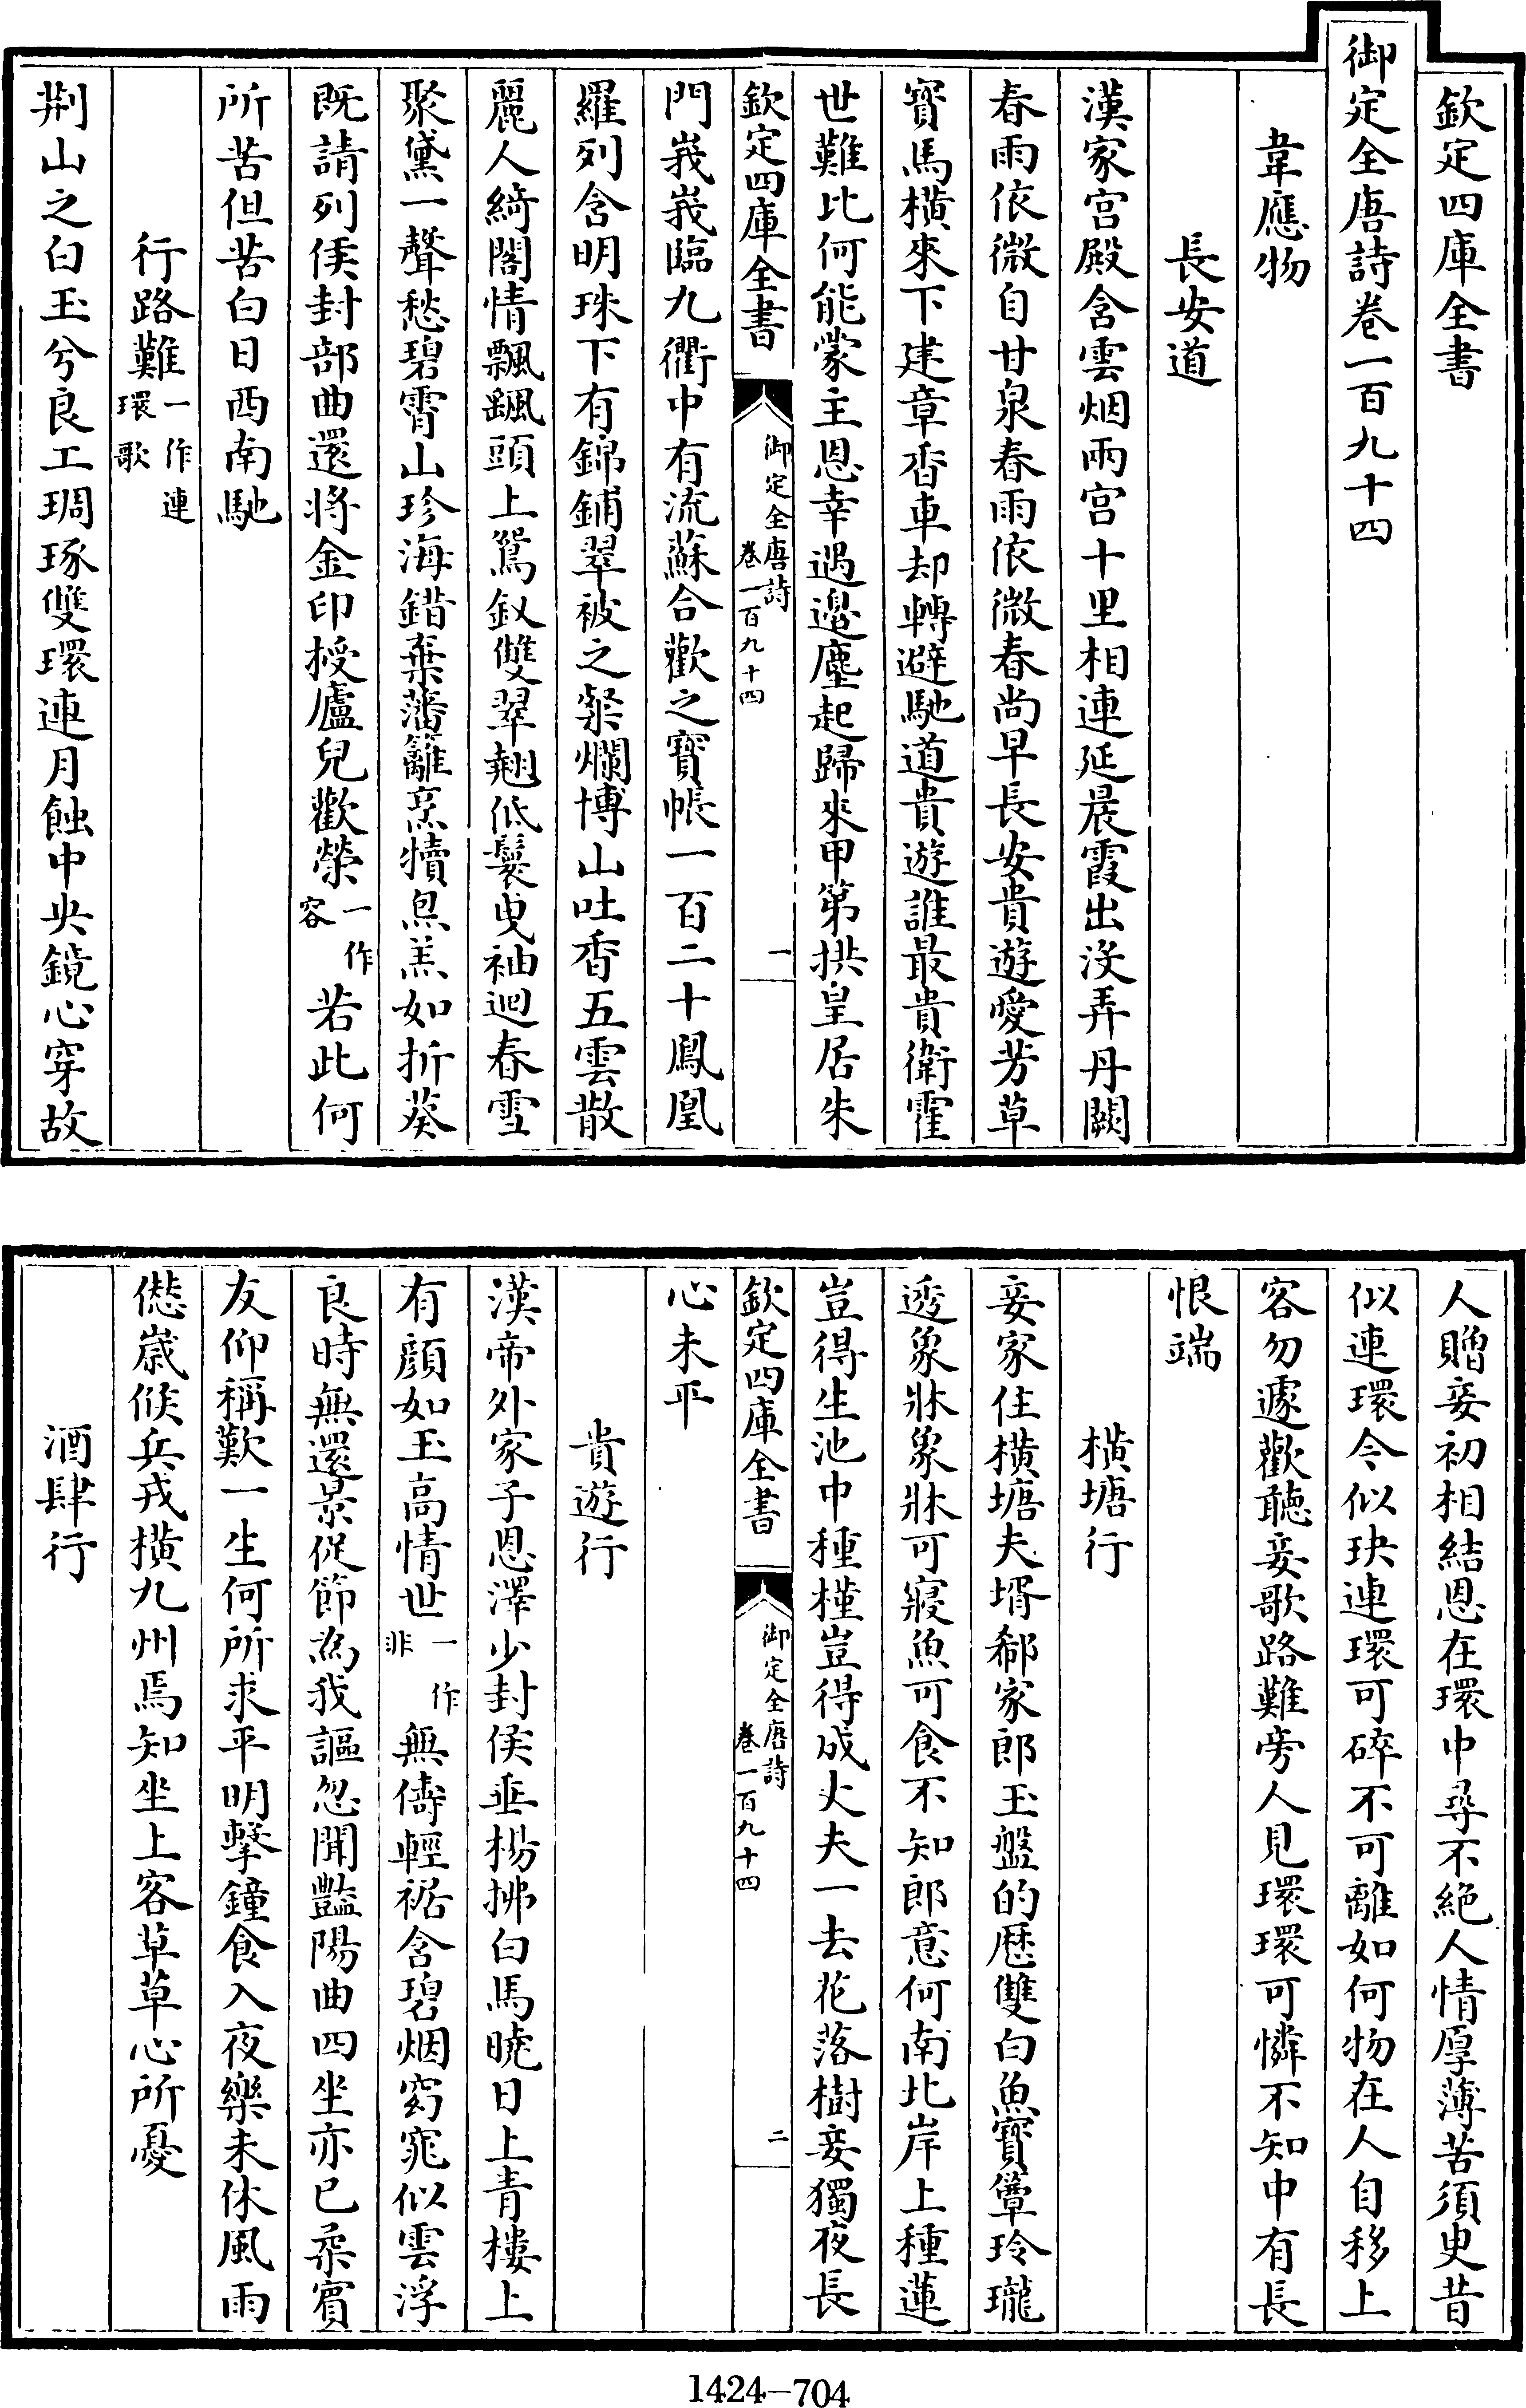 欽定四庫全書
御定全唐詩卷一百九十四
韋應物
長安道
漢家宫殿含雲烟兩宫十里相連延晨霞出没弄丹闕
春雨依微自甘泉春雨依微春尚早長安貴遊愛芳草
寳馬横來下建章香車却轉避馳道貴遊誰最貴衛霍
世難比何能蒙主恩幸遇邊塵起歸來甲第拱皇居朱
欽定四庫全書
御定全唐詩
卷一百九十四
一
門峩峩臨九衢中有流蘇合歡之寳帳一百二十鳳凰
羅列含明珠下有錦鋪翠被之粲爛博山吐香五雲散
麗人綺閣情飄颻頭上鴛釵雙翠翹低鬟曳袖迴春雪
聚黛一聲愁碧霄山珍海錯棄藩籬烹犢炰羔如折葵
既請列侯封部曲還將金印授廬兒歡榮一作容若此何
所苦但苦白日西南馳
行路難一作連環歌
荆山之白玉兮良工琱琢雙環連月蝕中央鏡心穿故
人贈妾初相結恩在環中尋不絶人情厚薄苦須臾昔
似連環今似玦連環可碎不可離如何物在人自移上
客勿遽歡聽妾歌路難旁人見環環可憐不知中有長
恨端
横塘行
妾家住横塘夫壻郗家郎玉盤的歷雙白魚寳簟玲瓏
透象牀象牀可寢魚可食不知郎意何南北岸上種蓮
豈得生池中種槿豈得成丈夫一去花落樹妾獨夜長
欽定四庫全書
御定全唐詩
卷一百九十四
二
心未平
貴遊行
漢帝外家子恩澤少封侯垂楊拂白馬曉日上青樓上
有顔如玉高情世一作非無儔輕裾含碧烟窈窕似雲浮
良時無還景促節為我謳忽聞豔陽曲四坐亦已柔賓
友仰稱歎一生何所求平明擊鐘食入夜樂未休風雨
愆歲候兵戎横九州焉知坐上客草草心所憂
酒肆行
1424-704